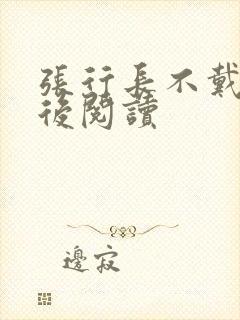 張行長不戴
後閱讀
邊寂